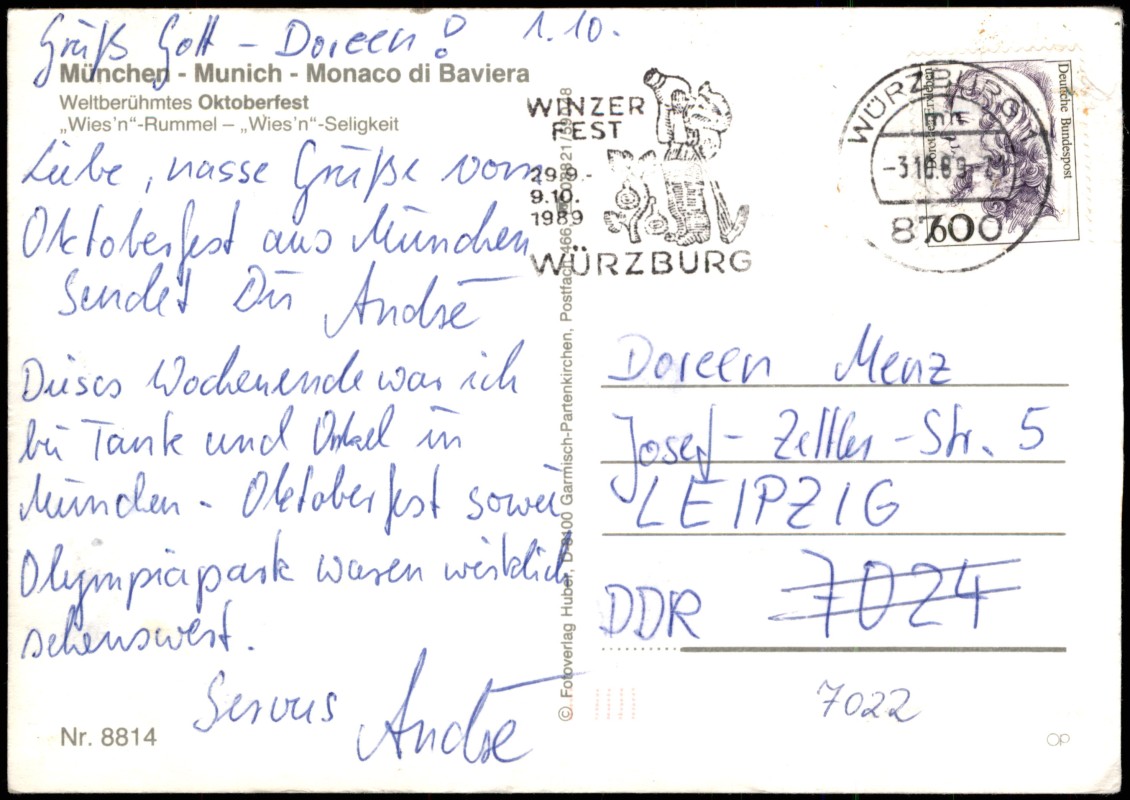 Grüß Gott – Doreen! 1.10.
München - Munich - Monaco di Baviera
Weltberühmtes Oktoberfest
„Wies'n“-Rummel – „Wies'n“-Seligkeit
Liebe, nasse Grüße vom
Oktoberfest aus München
sendet Dir André
Dieses Wochenende war ich
bei Tante und Onkel in
München - Oktoberfest sowie
Olympiapark waren wirklich
sehenswert.
Servus André
Nr. 8814
© Fotoverlag Huber, D-8100 Garmisch-Partenkirchen, Postfach 466
WINZER
FEST
29.9.-
9.10.
1989
WÜRZBURG
WÜRZBURG 1
mn
-3.10.89
8700
Deutsche Bundespost
60
Doreen Menz
Josef-Zettler-Str. 5
LEIPZIG
DDR 7024
7022